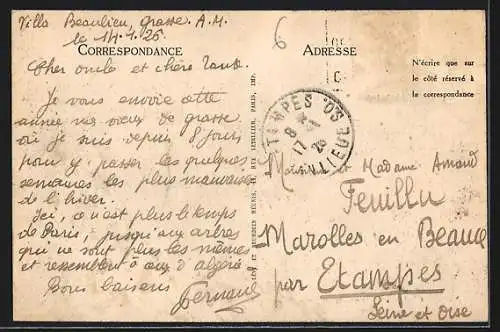 Villa Beaulieu, Grasse. A.M.
le 14.1.26
CORRESPONDANCE
ADRESSE
6
N'écrire que sur
le côté réservé à
la correspondance
Cher oncle et chère Tante.
Je vous envoie cette
année mes vœux de Grasse
où je suis depuis 8 jours
pour y passer les quelques
semaines les plus mauvaises
de l'hiver.
Ici, ce n'est plus le temps
de Paris, jusqu'aux arbres
qui ne sont plus les mêmes
et ressemblent à ceux d'algérie
Bons baisers
Fernand
8
17
Monsieur et Madame Armand
Feuillu
Marolles en Beauce
par Etampes
Seine et Oise